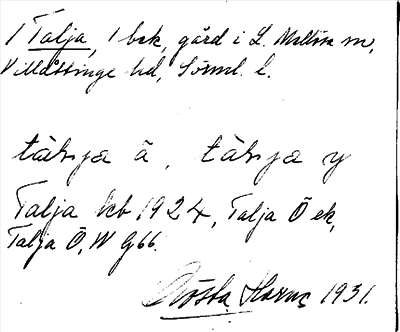 1 Talja, 1 bsk, gård i L. Mellösa sn,
Villåttinge hd, Sörml. l.
tàlyja ā, tàlyja y
Talja kb 1924, Talja Ö ek,
Talja Ö, W G66.
Gösta Harnz 1931.